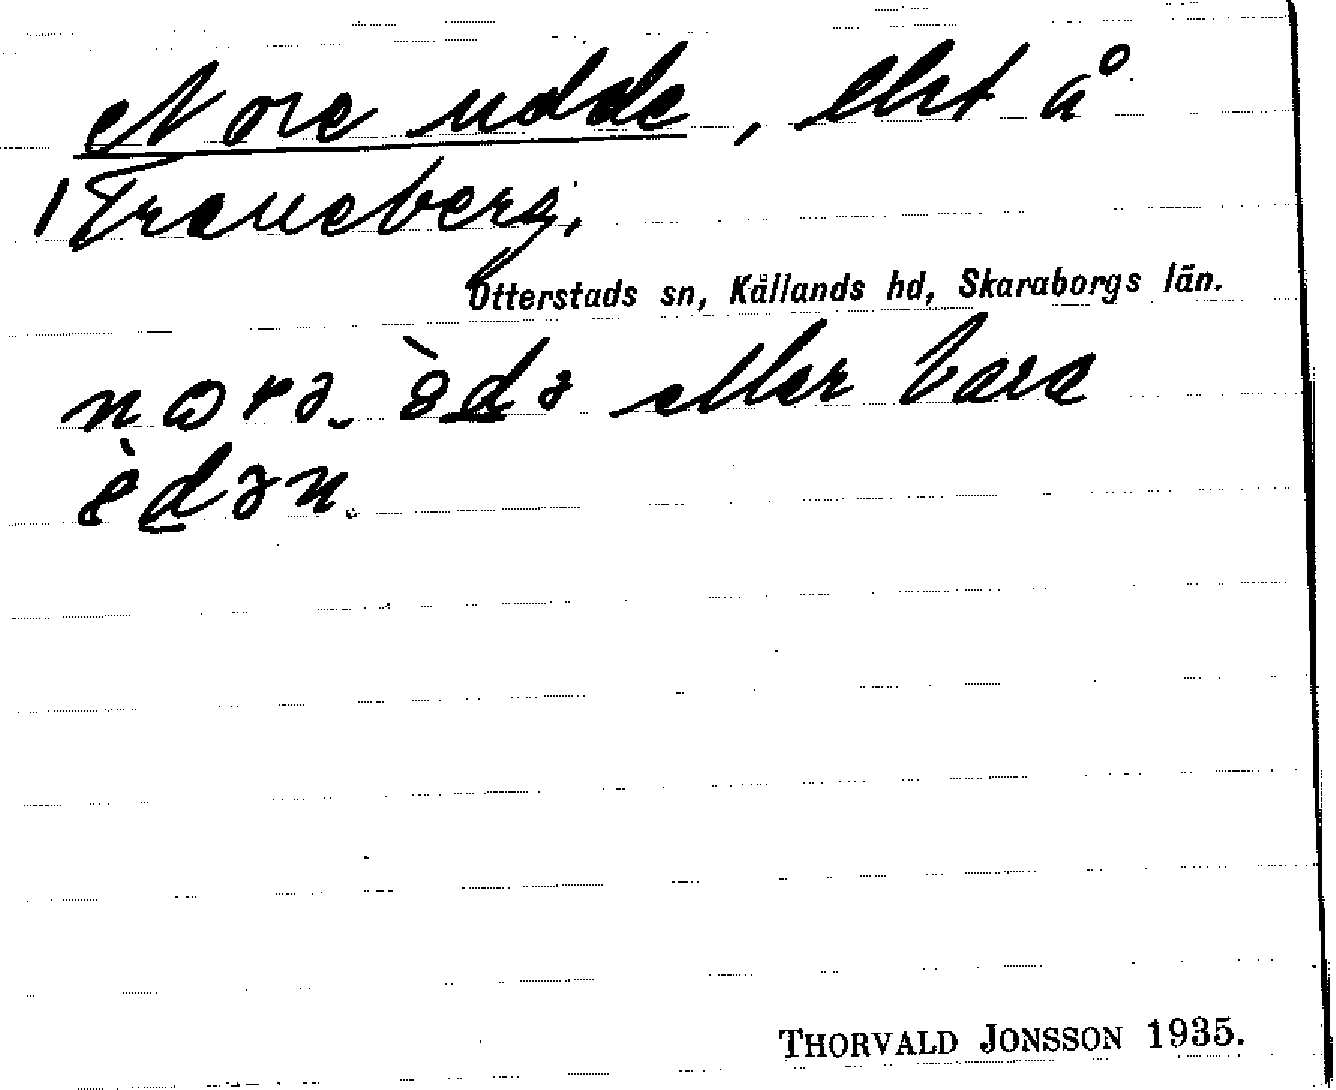 Nore udde, ehst å
1 Traneberg.
Otterstads sn, Kållands hd, Skaraborgs län.
eller bara
THORVALD JONSSON 1935.